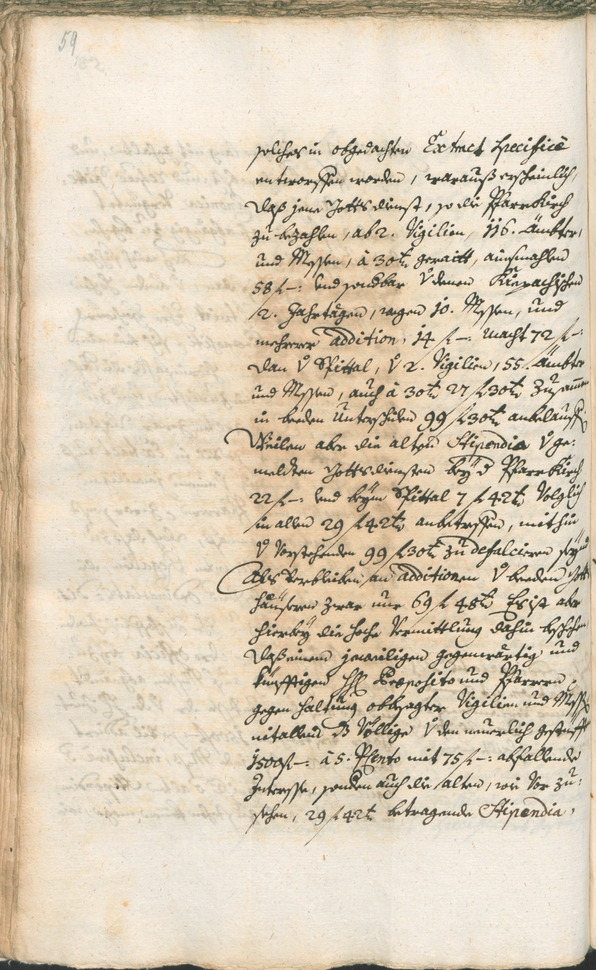 59
182
solches in obgedachten Extract specificè
entworffen worden, warauß erscheinlich,
daß jene Gottsdienst, so die Pfarrkirch
zu bezahlen, als 2. Vigilien, 116. Ämbter,
und Messen, à 30 k. geraitt, ausmahlen
58 f —: und sonderbar denen
2. Jahrtägen, wegen 10. Messen, und
mehrerer addition, 14 f —: macht 72 f —:
dan Spittal, 2. Vigilien, 55. Ämbter
und Messen, auch à 30 k. 27 f 30 k. Zusammen
in beeden Unterschiden 99 f 30 k. anbelauffe.
Weilen aber die alten Stipendia ge-
melten Gottsdiensten bey d. Pfarrkirch
22 f —: und beym Spittal 7 f 42 k. Volglich
in allen 29 f 42 k. anbetreffen, mithin
Vorstehenden 99 f 30 k. zu defalcieren seynd
Als verbleiben an additionen beeden Gotts
häusern zwar nur 69 f 48 k. Es ist aber
hierbey die hoche Vermittlung dahin beschehen
daß einem jeweiligen gegenwärtig und
künfftigen Hhl. Praeposito und Pfarrern,
gegen haltung obbesagter Vigilien und Messen
nit allein Völlige den neuerlich gestifft
1500 f —: à 5. PCento mit 75 f —: abfallende
Interesse, sonder auch die alten, wie Vor zu-
sehen, 29 f 42 k. betragende Stipendia,